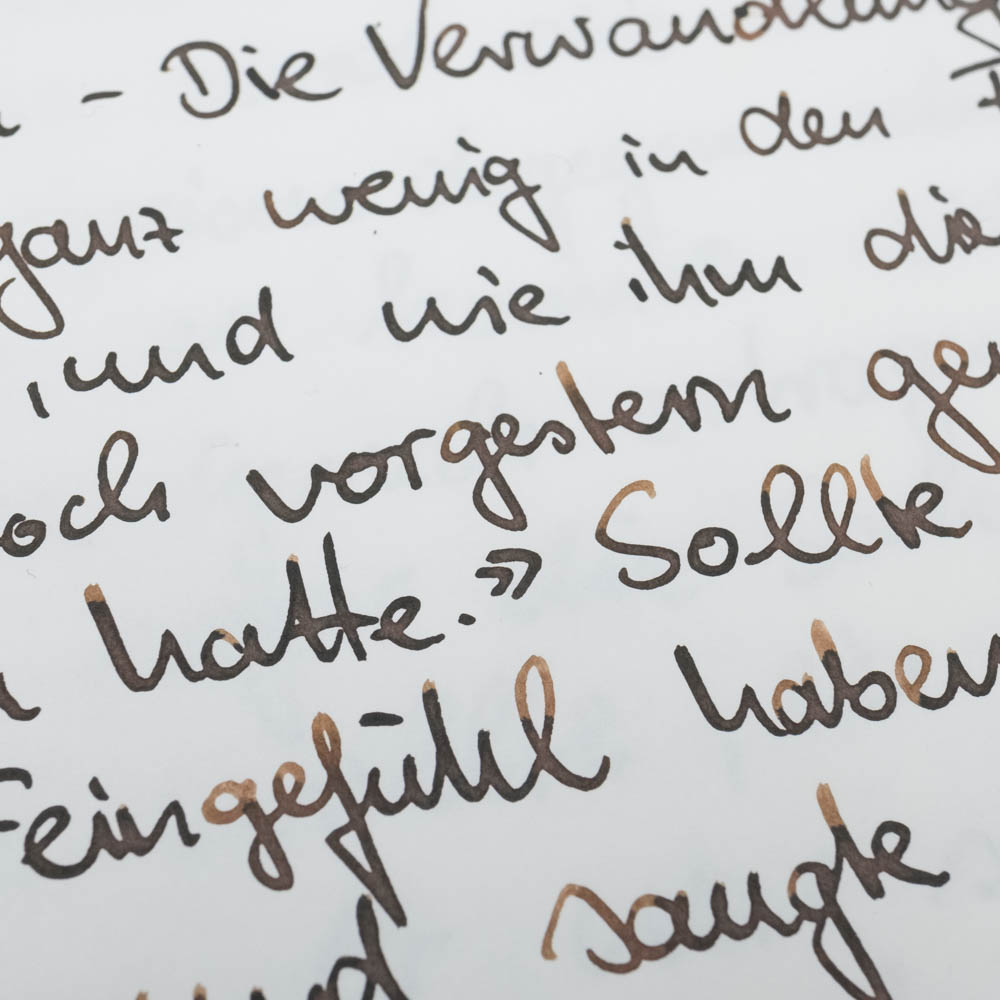 - Die Verwandlung
ganz wenig in den
, und wie ihm die
noch vorgestern
hatte.» Sollte
Feingefühl haben
und saugte